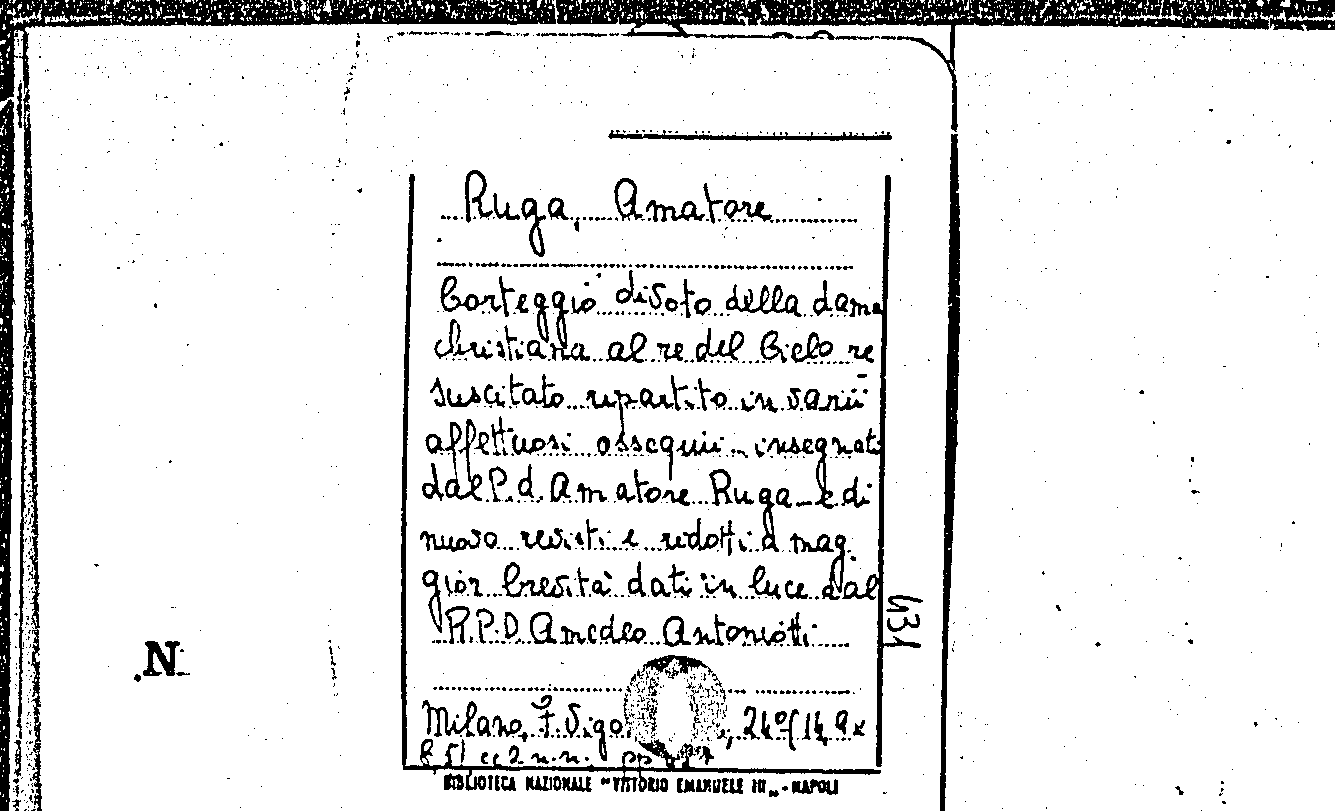 Ruga, Amatore
Corteggio divoto della dama
christiana al re del Cielo re
suscitato ripartito in varii
affettuosi ossequii insegnati
dal P. d. Amatore Ruga e di
nuovo revisti e ridotti a mag
gior brevità dati in luce dal
R.P.D. Amedeo Antoniotti
431
N
Milano, F. Vigo
cc 2 n.n. pp
BIBLIOTECA NAZIONALE "VITTORIO EMANUELE III" - NAPOLI